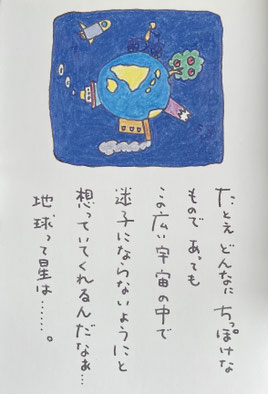 たとえ どんなに ちっぽけな
ものであっても
この広い宇宙の中で
迷子にならないようにと
想っていてくれるんだなぁ…
地球って星は……。